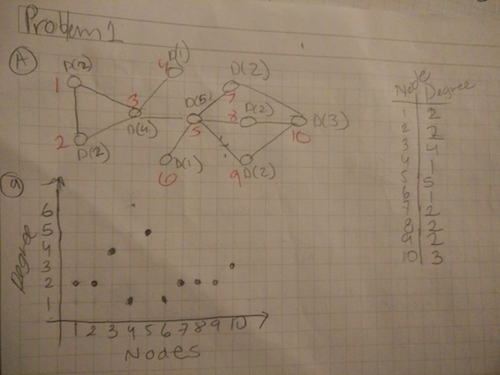 Problem 1
A
D(2) 4 D(1) D(2)
1 3 D(5) 7
D(4) 8 D(2) D(3)
2 D(2) 5 10
6 D(1) 9 D(2)
Node Degree
1 2
2 2
3 4
4 1
5 5
6 1
7 2
8 2
9 2
10 3
a
Degree
6
5
4
3
2
1
1 2 3 4 5 6 7 8 9 10
Nodes